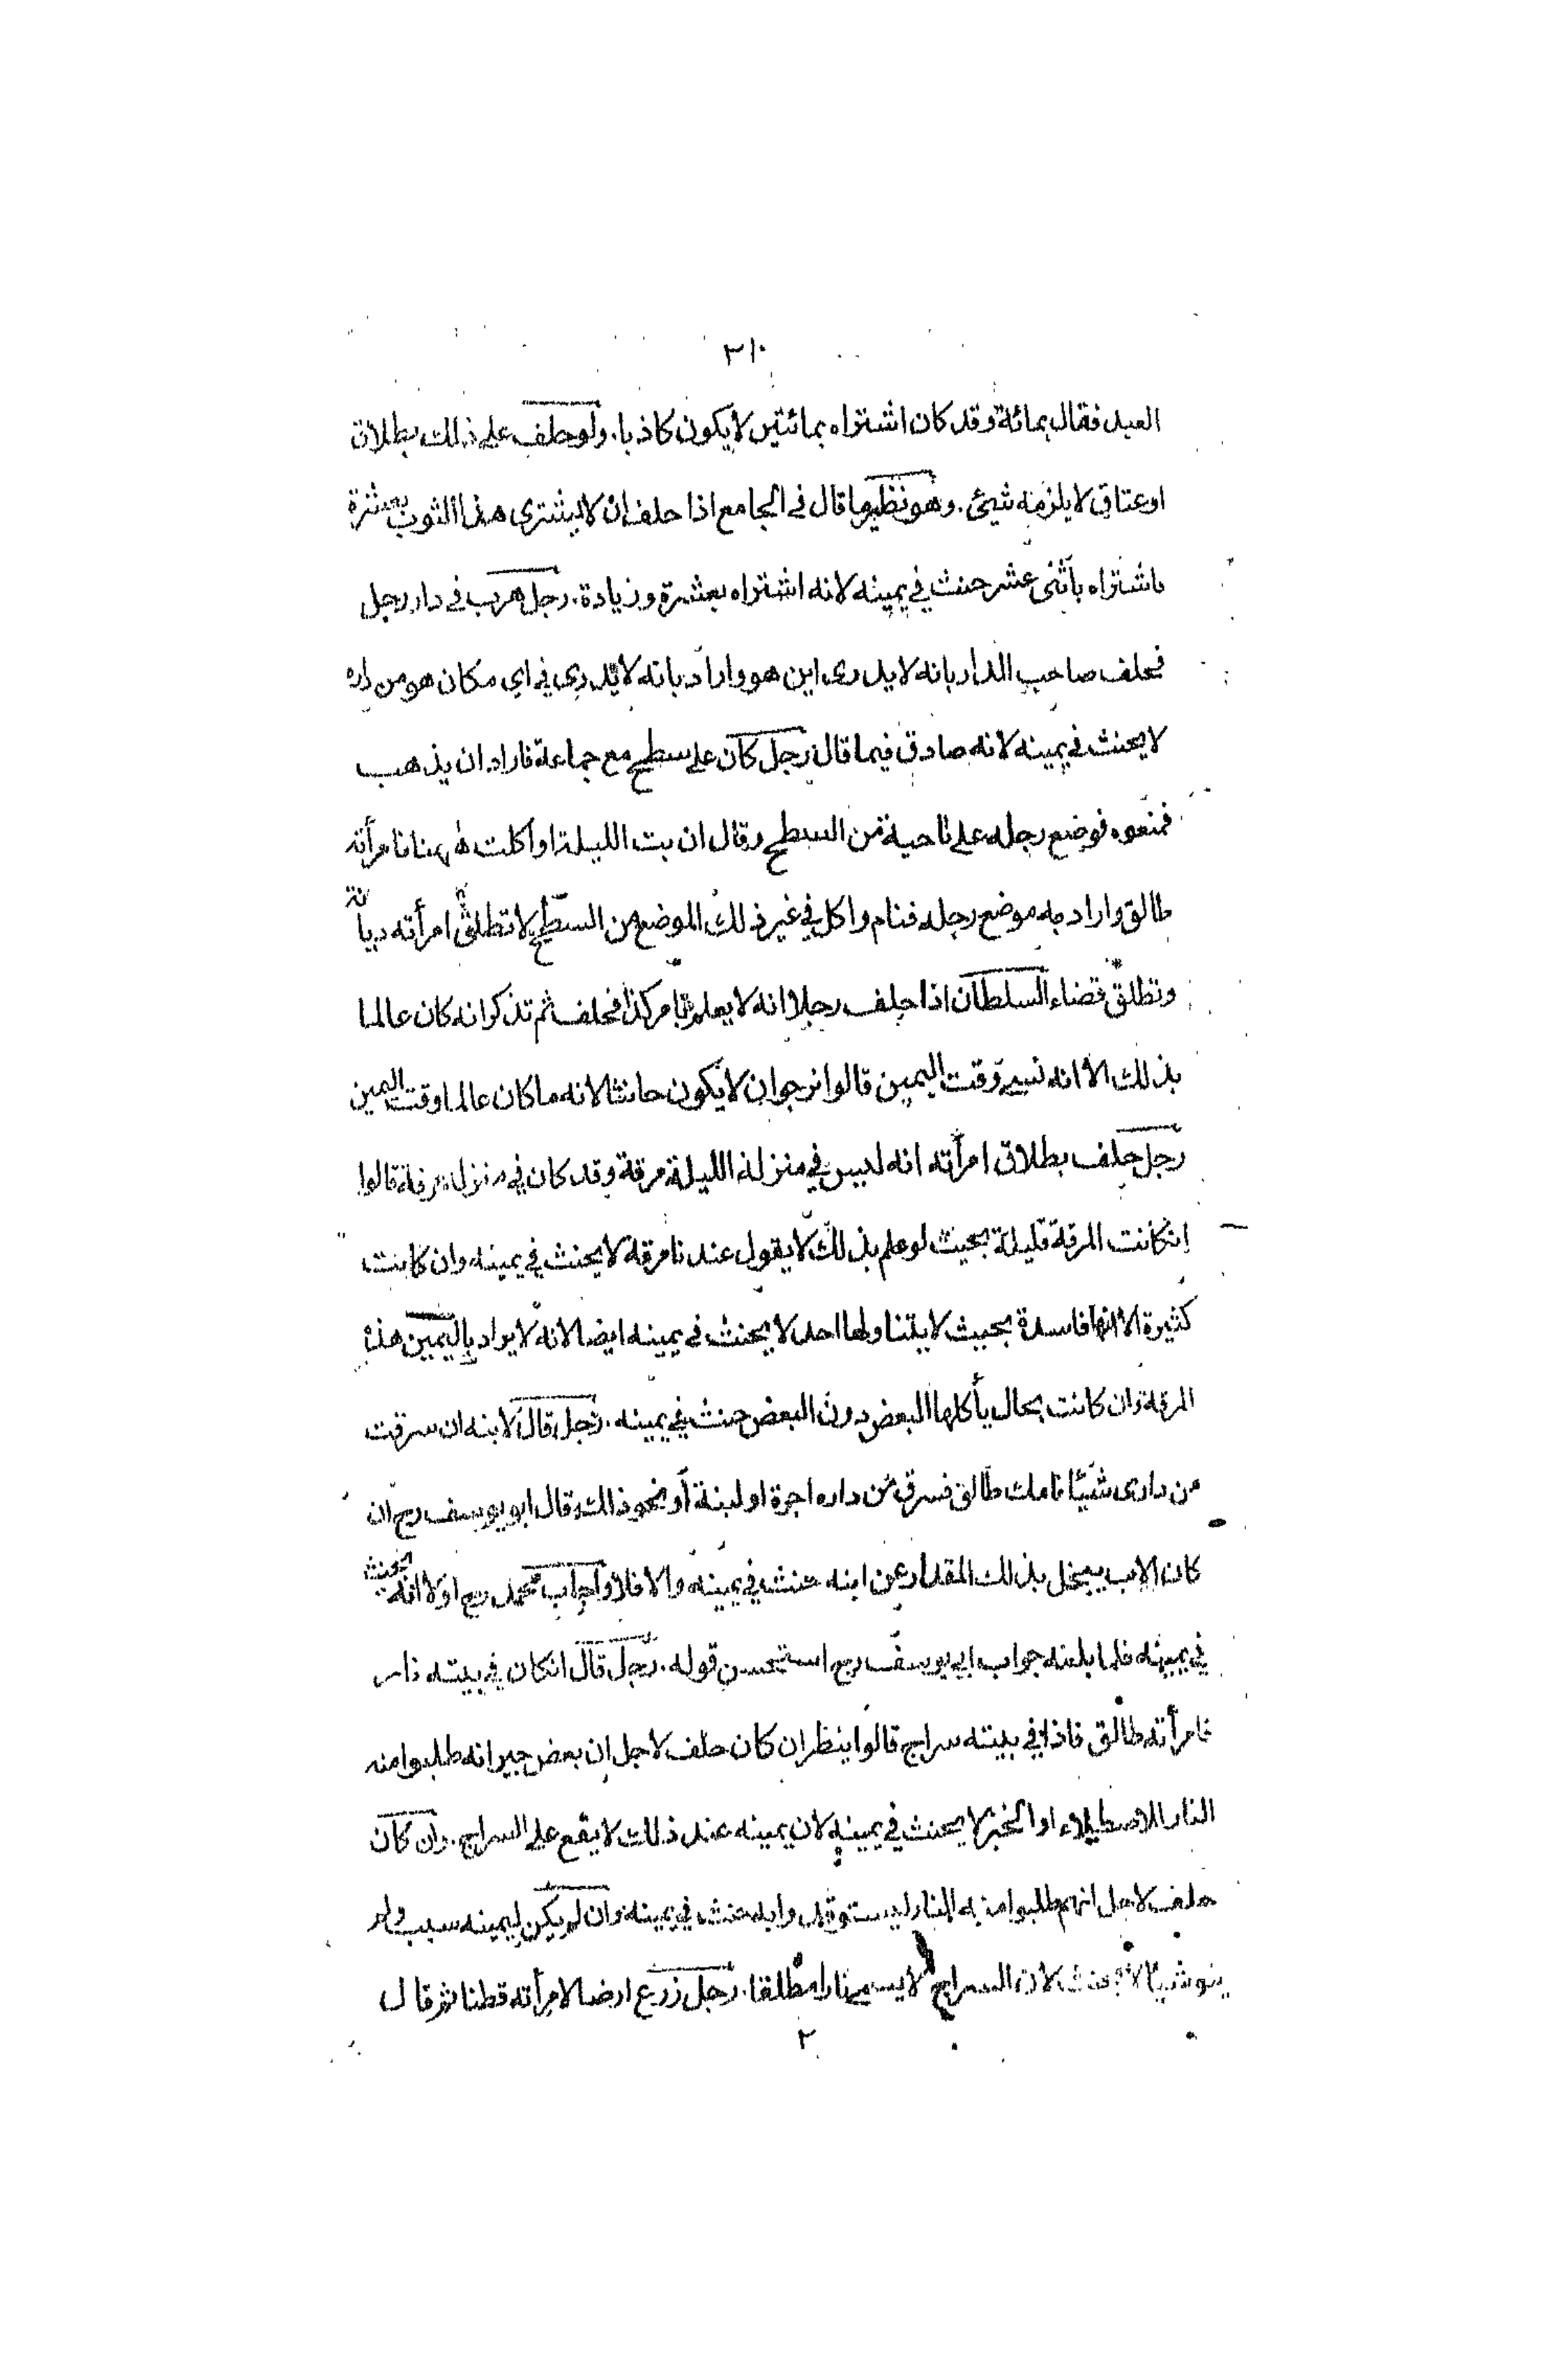 ٣١٠
العبد فقال بمائة وقد كان اشتراه بمائتين لا يكون كاذبا. ولو حلف على ذلك بطلاق
او عتاق لا يلزمه شيئ. وهو نظير ما قال في الجامع اذا حلف ان لا يشترى هذا الثوب بعشرة
فاشتراه باثنى عشر حنث في يمينه لانه اشتراه بعشرة وزيادة. رجل هرب في دار رجل
فحلف صاحب الدار بانه لا يدرى اين هو واراد بانه لا يدرى في اي مكان هو من داره
لا يحنث في يمينه لانه صادق فيما قال رجل كان على سطح مع جماعة فاراد ان يذهب
فمنعوه فوضع رجله على ناحية من السطح وقال ان بت الليلة او اكلت ههنا فامرأته
طالق واراد به موضع رجله فنام واكل في غير ذلك الموضع من السطح لا تطلق امرأته ديانة
وتطلق قضاء السلطان اذا حلف رجلا انه لا يعلم بامر كذا فحلف ثم تذكر انه كان عالما
بذلك الا انه نسي وقت اليمين قالوا نرجو ان لا يكون حانثا لانه ما كان عالما وقت اليمين
رجل حلف بطلاق امرأته انه ليس في منزله الليلة مرقة وقد كان في منزله مرقة قالوا
انكانت المرقة قليلة بحيث لو علم بذلك لا يقول عندنا مرقة لا يحنث في يمينه وان كانت
كثيرة الا انها فاسدة بحيث لا يتناولها احد لا يحنث في يمينه ايضا لانه لا يراد باليمين هذه
المرقة وان كانت بحال يأكلها البعض دون البعض حنث في يمينه. رجل قال لابنه ان سرقت
من دارى شيئا فامك طالق فسرق من داره اجرة او لبنة أو نحو ذلك قال ابو يوسف رح ان
كان الاب يبخل بذلك المقدار عن ابنه حنث في يمينه والا فلا واجاب محمد رح اولا انه يحنث
في يمينه فلما بلغه جواب ابي يوسف رح استحسن قوله. رجل قال انكان في بيته نار
فامرأته طالق فاذا في بيته سراج قالوا ينظر ان كان حلف لاجل ان بعض جيرانه طلبوا منه
النار للاصطلاء او الخبز لا يحنث في يمينه لان يمينه عند ذلك لا يقع على السراج. وان كان
حلف لاجل انهم طلبوا منه النار ليستوقدوا به حنث في يمينه وان لم يكن ليمينه سبب ولم
ينو شيئا لا يحنث لان السراج لا يسمى نارا مطلقا. رجل زرع ارضا لامرأته قطنا ثم قال
٢